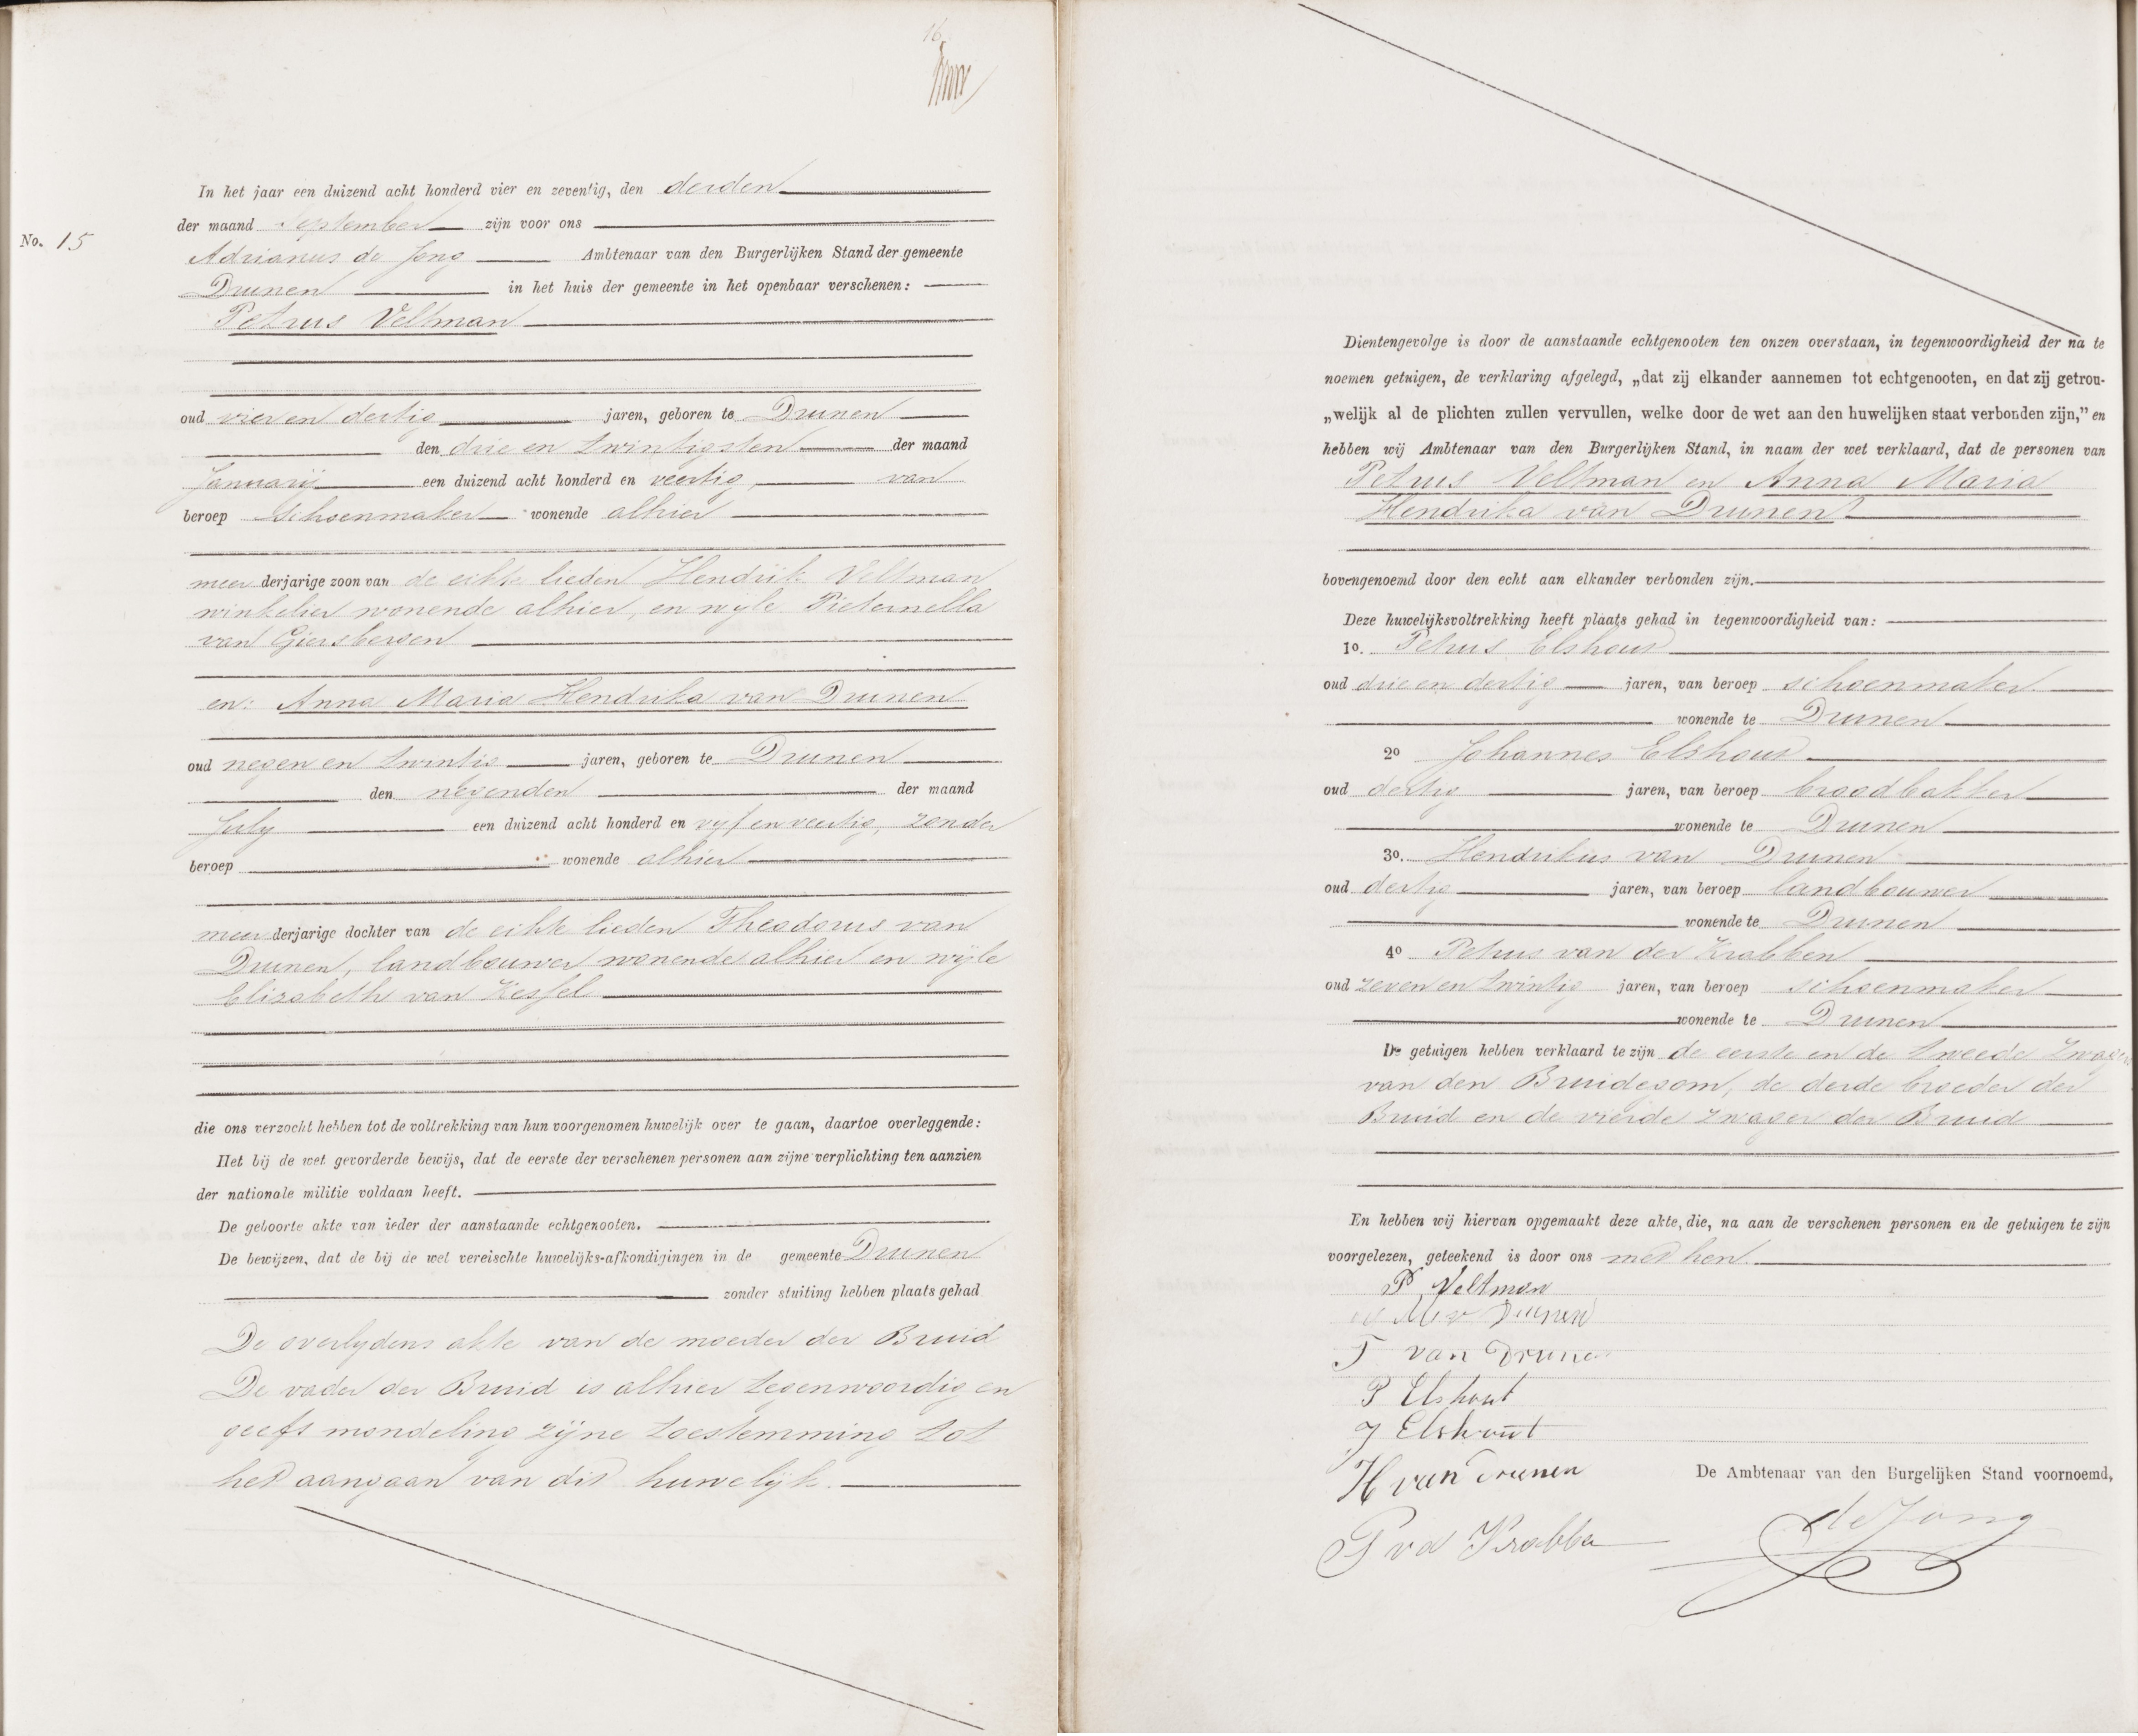 16
No. 15
In het jaar een duizend acht honderd vier en zeventig, den derden
der maand September zijn voor ons
Adrianus de Jong Ambtenaar van den Burgerlijken Stand der gemeente
Drunen in het huis der gemeente in het openbaar verschenen:
Petrus Veltman
oud vier en dertig jaren, geboren te Drunen
den drie en twintigsten der maand
Januarij een duizend acht honderd en veertig, van
beroep schoenmaker wonende alhier
meerderjarige zoon van de echte lieden Hendrik Veltman
winkelier wonende alhier, en wijle Pieternella
van Giersbergen
en: Anna Maria Hendrika van Drunen
oud negen en twintig jaren, geboren te Drunen
den negenden der maand
July een duizend acht honderd en vyf en veertig, zonder
beroep wonende alhier
meerderjarige dochter van de echte lieden Theodorus van
Drunen, landbouwer wonende alhier en wijle
Elizabeth van Kessel
die ons verzocht hebben tot de voltrekking van hun voorgenomen huwelijk over te gaan, daartoe overleggende:
Het bij de wet gevorderde bewijs, dat de eerste der verschenen personen aan zijne verplichting ten aanzien
der nationale militie voldaan heeft.
De geboorte akte van ieder der aanstaande echtgenooten.
De bewijzen, dat de bij de wet vereischte huwelijks-afkondigingen in de gemeente Drunen
zonder stuiting hebben plaats gehad
De overlydens akte van de moeder der Bruid
De vader der Bruid is alhier tegenwoordig en
geeft mondeling zijne toestemming tot
het aangaan van dit huwelijk.
Dientengevolge is door de aanstaande echtgenooten ten onzen overstaan, in tegenwoordigheid der na te
noemen getuigen, de verklaring afgelegd, „dat zij elkander aannemen tot echtgenooten, en dat zij getrou-
„welijk al de plichten zullen vervullen, welke door de wet aan den huwelijken staat verbonden zijn,” en
hebben wij Ambtenaar van den Burgerlijken Stand, in naam der wet verklaard, dat de personen van
Petrus Veltman en Anna Maria
Hendrika van Drunen
bovengenoemd door den echt aan elkander verbonden zijn.
Deze huwelijksvoltrekking heeft plaats gehad in tegenwoordigheid van:
1o. Petrus Elshout
oud drie en dertig jaren, van beroep schoenmaker
wonende te Drunen
2o Johannes Elshout
oud dertig jaren, van beroep broodbakker
wonende te Drunen
3o. Hendrikus van Drunen
oud dertig jaren, van beroep landbouwer
wonende te Drunen
4o Petrus van der Krabben
oud zeven en twintig jaren, van beroep schoenmaker
wonende te Drunen
De getuigen hebben verklaard te zijn de eerste en de tweede zwager
van den Bruidegom, de derde broeder der
Bruid en de vierde zwager der Bruid
En hebben wij hiervan opgemaakt deze akte, die, na aan de verschenen personen en de getuigen te zijn
voorgelezen, geteekend is door ons met hen.
P Veltman
Drunen
T van Drunen
P Elshout
J Elshout
H van Drunen
De Ambtenaar van den Burgelijken Stand voornoemd,
P vd Krabbe
de Jong